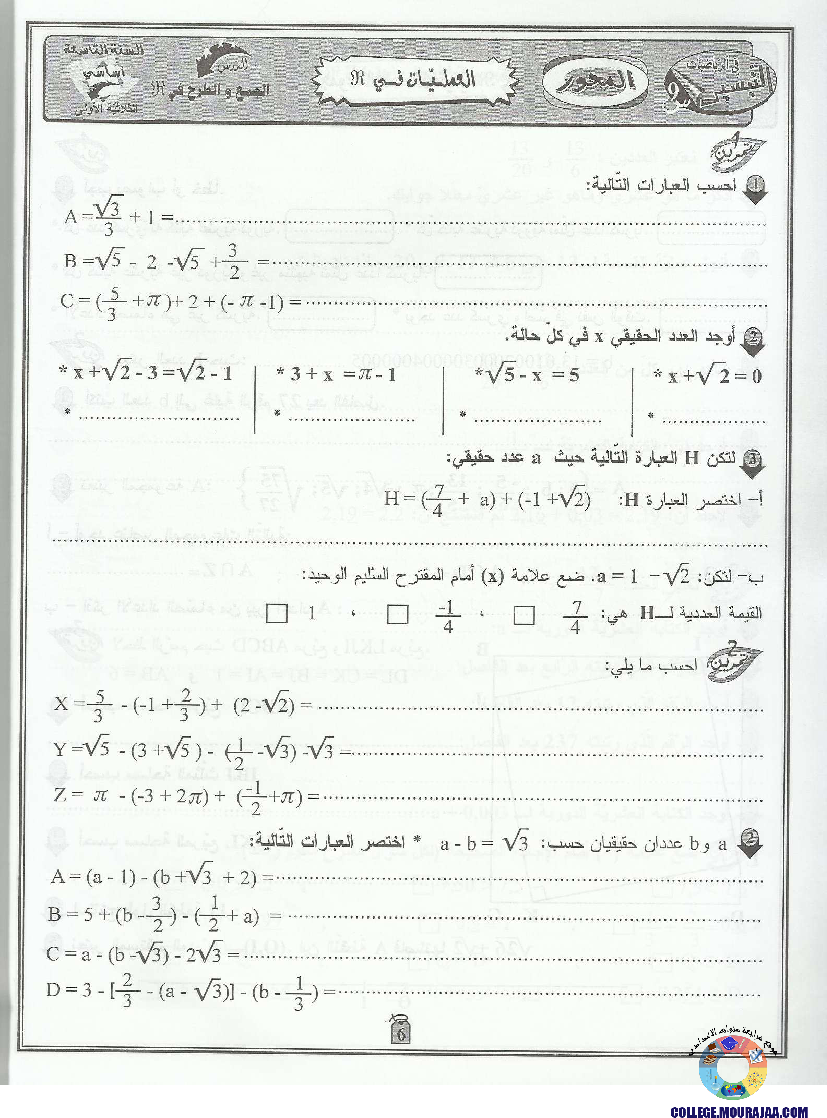 السنة التاسعة
أساسي
الثلاثية الأولى
الدرس
الجمع و الطرح في ℜ
العمليّات في ℜ
المحور
في الرياضيات
9
تمرين 1
1 احسب العبارات التّالية:
A = √3/3 + 1 = ........................
B = √5 - 2 - √5 + 3/2 = ........................
C = (5/3 + π) + 2 + (- π -1) = ........................
2 أوجد العدد الحقيقي x في كلّ حالة.
* x + √2 - 3 = √2 - 1 | * 3 + x = π - 1 | * √5 - x = 5 | * x + √2 = 0
* ........................ * ........................ * ........................ * ........................
3 لتكن H العبارة التّالية حيث a عدد حقيقي:
أ- اختصر العبارة H: H = (7/4 + a) + (-1 + √2)
........................
ب- لتكن: a = 1 - √2. ضع علامة (x) أمام المقترح السليم الوحيد:
القيمة العددية لـ H هي: 7/4 □ ، -1/4 □ ، 1 □
تمرين 2
احسب ما يلي:
X = 5/3 - (-1 + 2/3) + (2 - √2) = ........................
Y = √5 - (3 + √5) - (1/2 - √3) - √3 = ........................
Z = π - (-3 + 2π) + (-1/2 + π) = ........................
2 a و b عددان حقيقيان حسب: a - b = √3 * اختصر العبارات التّالية:
A = (a - 1) - (b + √3 + 2) = ........................
B = 5 + (b - 3/2) - (1/2 + a) = ........................
C = a - (b - √3) - 2√3 = ........................
D = 3 - [2/3 - (a - √3)] - (b - 1/3) = ........................
6
COLLEGE.MOURAJAA.COM